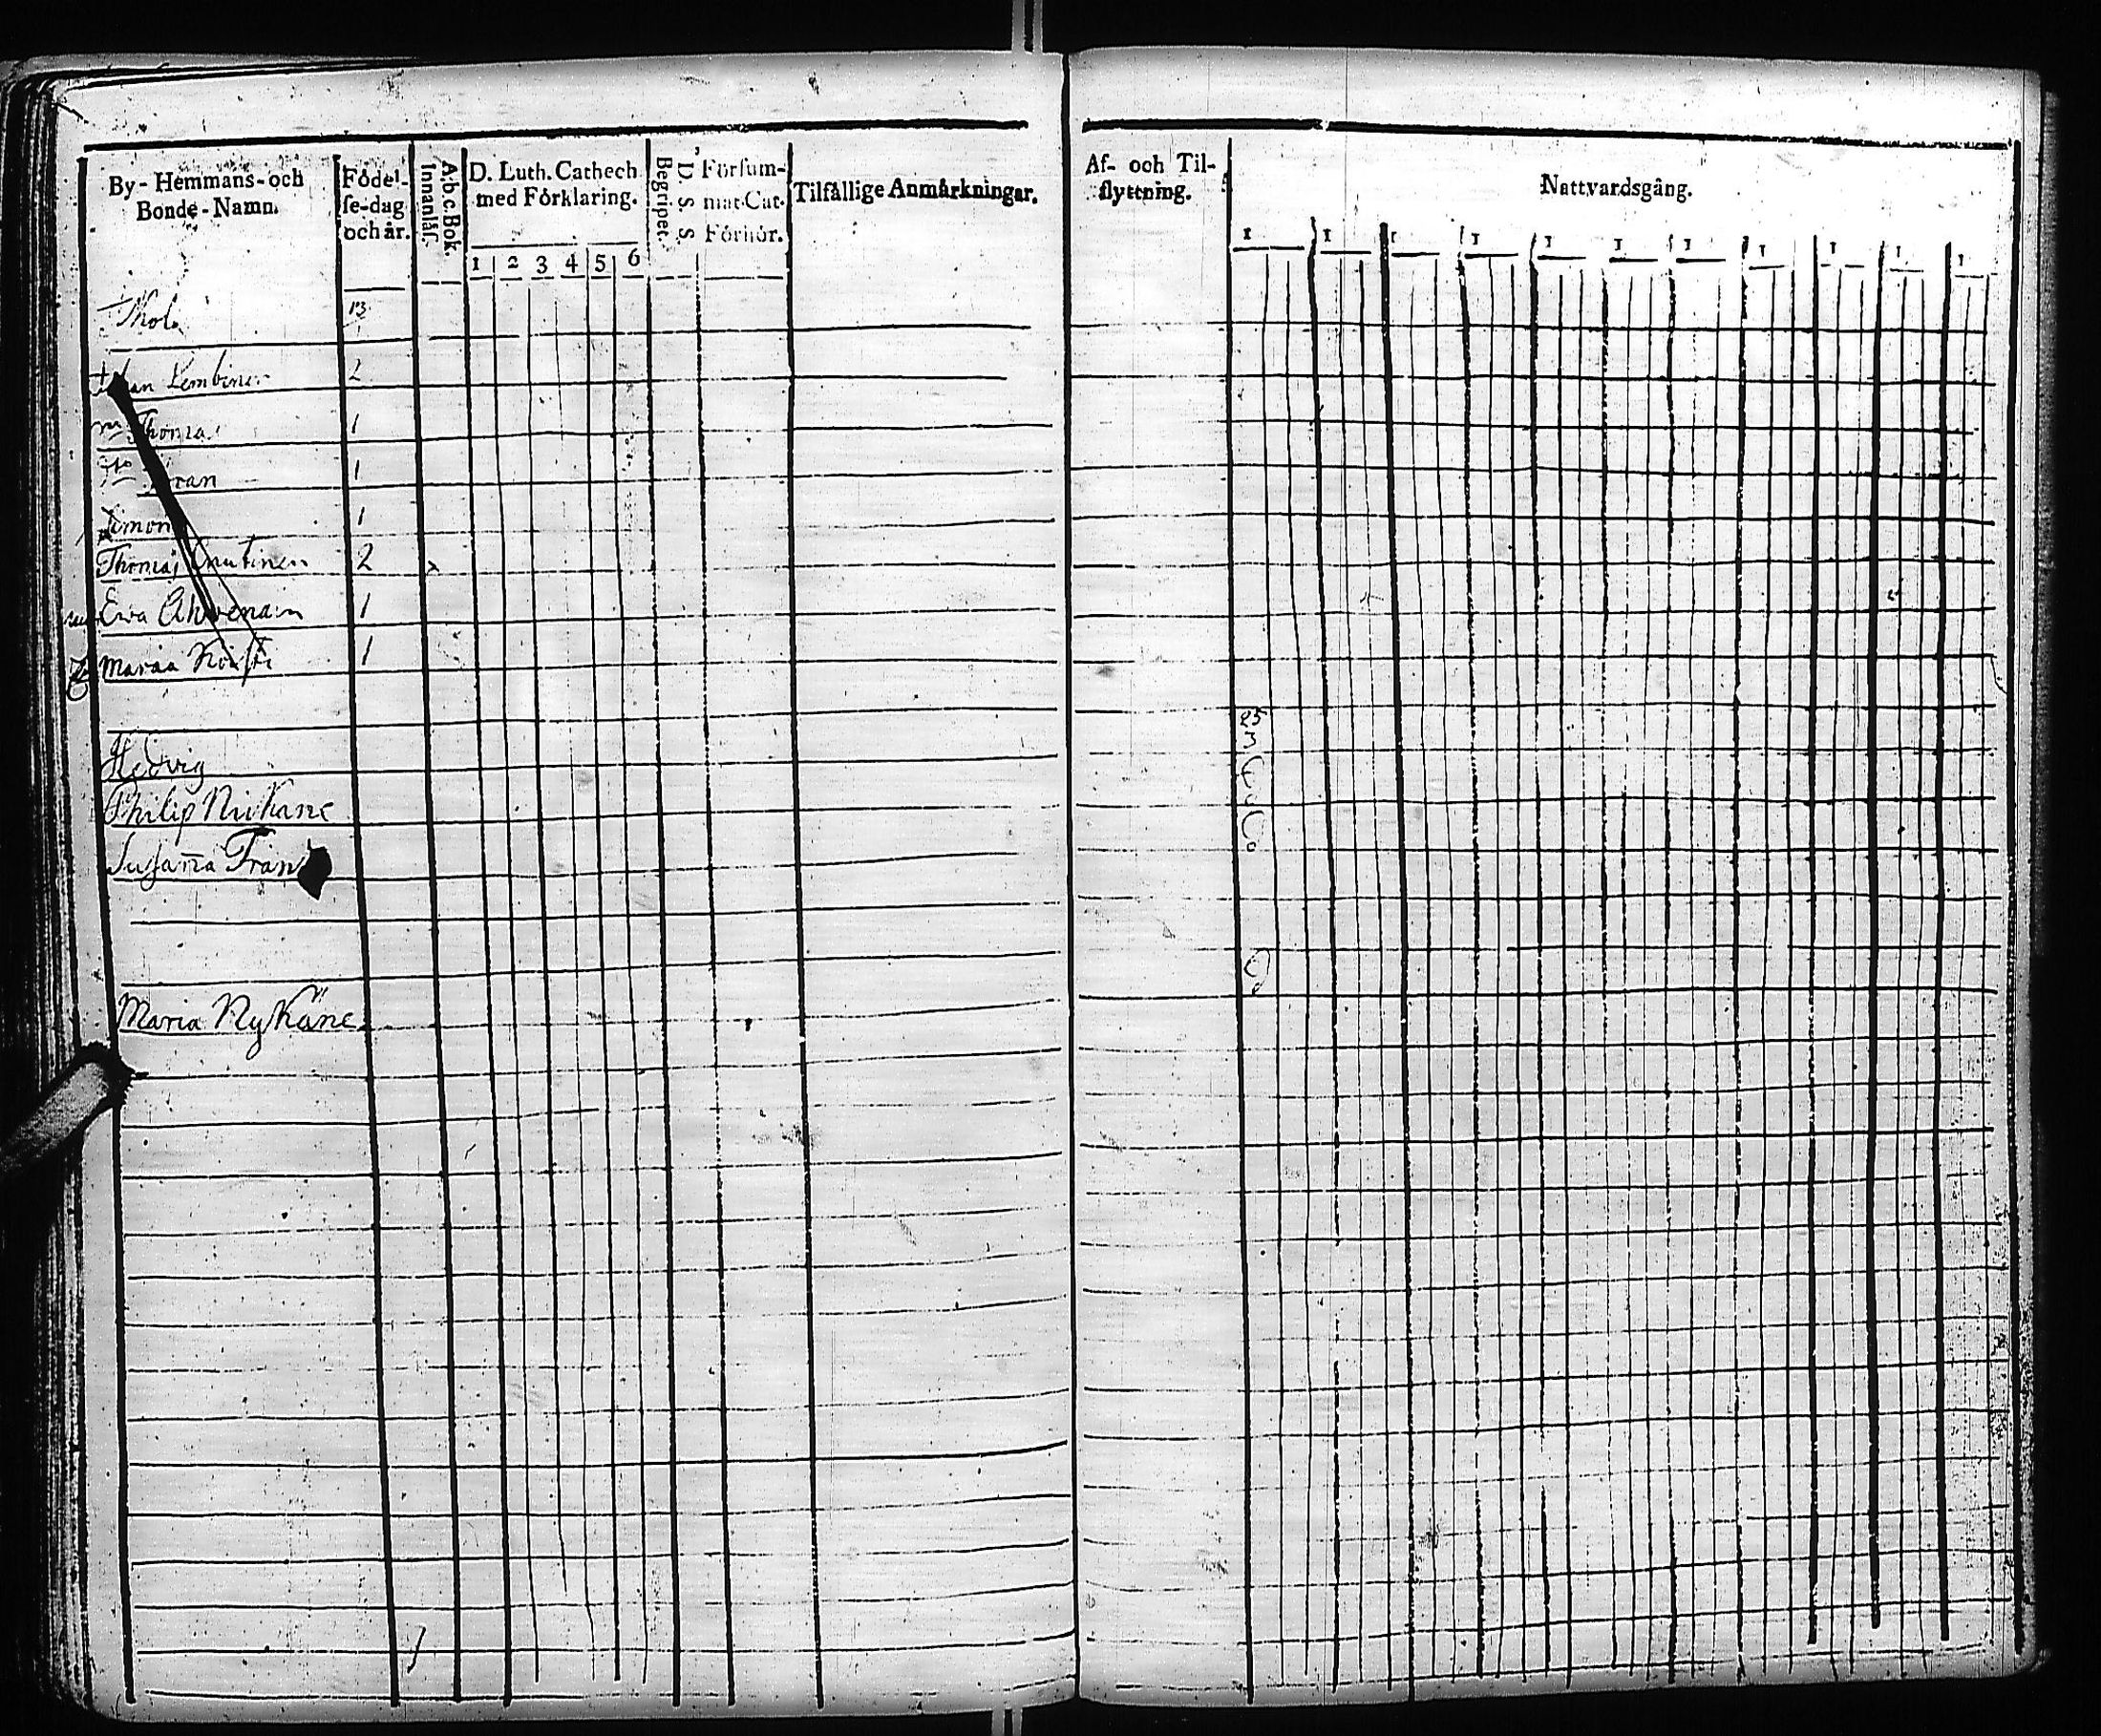 By- Hemmans- och Bonde-Namn.
Födel-se-dag och år.
A.b.c.Bok.
Innanläs.
D. Luth. Cathech. med Förklaring.
1 2 3 4 5 6
D. S. S.
Begripet.
Försum-mat. Cat. Förhör.
Tilfällige Anmärkningar.
Af- och Til-flyttning.
Nattvardsgång.
1 1 1 1 1 1 1 1 1 1 1
13
Lembinen 2
Thomas 1
1
Simon 1
Thomas 2
Ewa Ahvenain 1
Maria 1
25
3
Hedvig
Philip Niikane
Susaña
Maria Nykäne